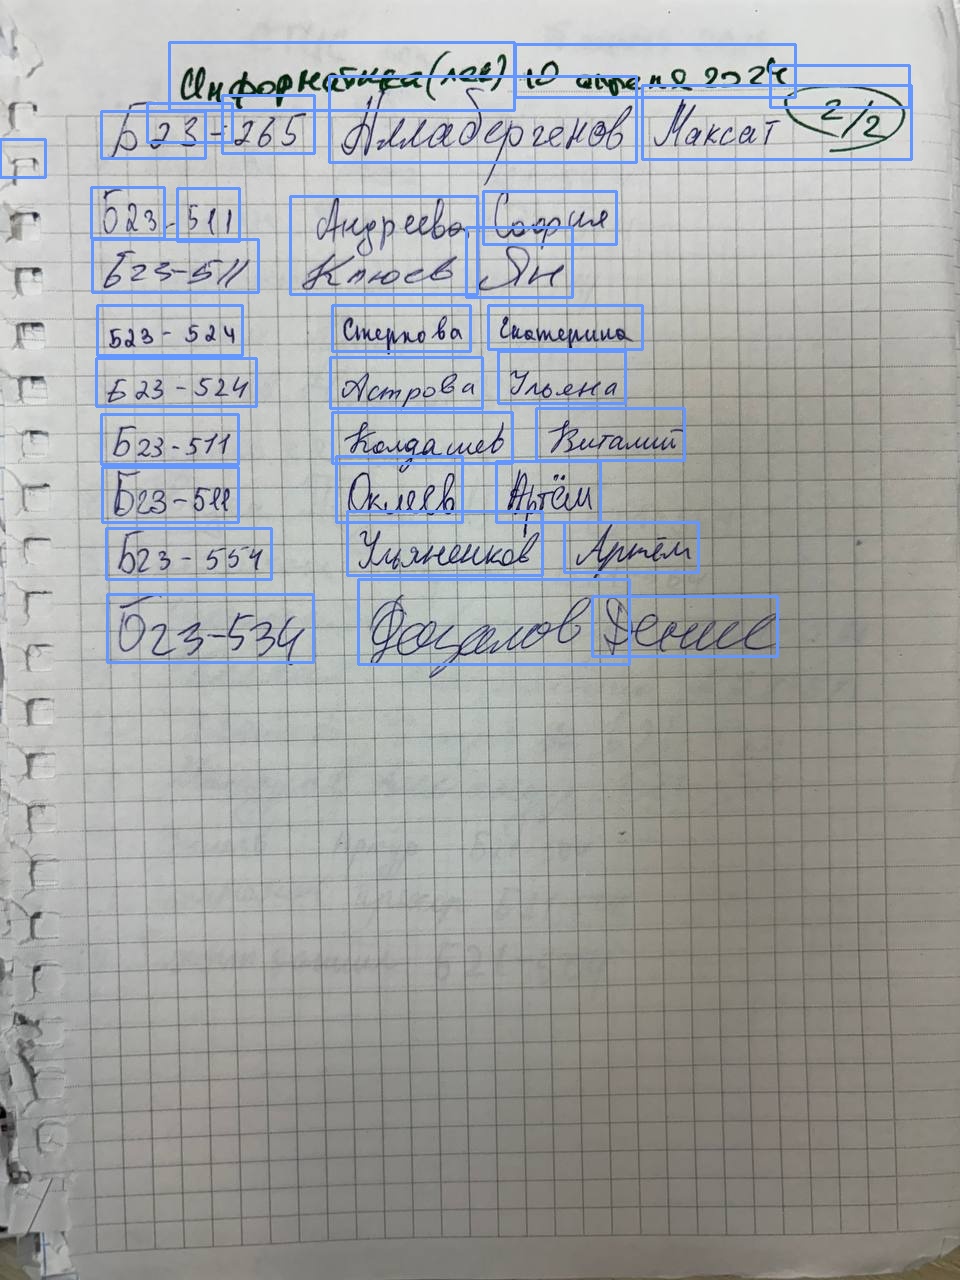 Информатика (лек) 10 апреля 2024
2/2
Б23-265 Аллабергенов Максат
Б23-511 Андреева София
Б23-511 Клюев Ян
Б23-524 Стернова Екатерина
Б23-524 Астрова Ульяна
Б23-511 Колдашев Виталий
Б23-511 Оклеев Артём
Б23-554 Ульяненков Артём
Б23-534 Денис